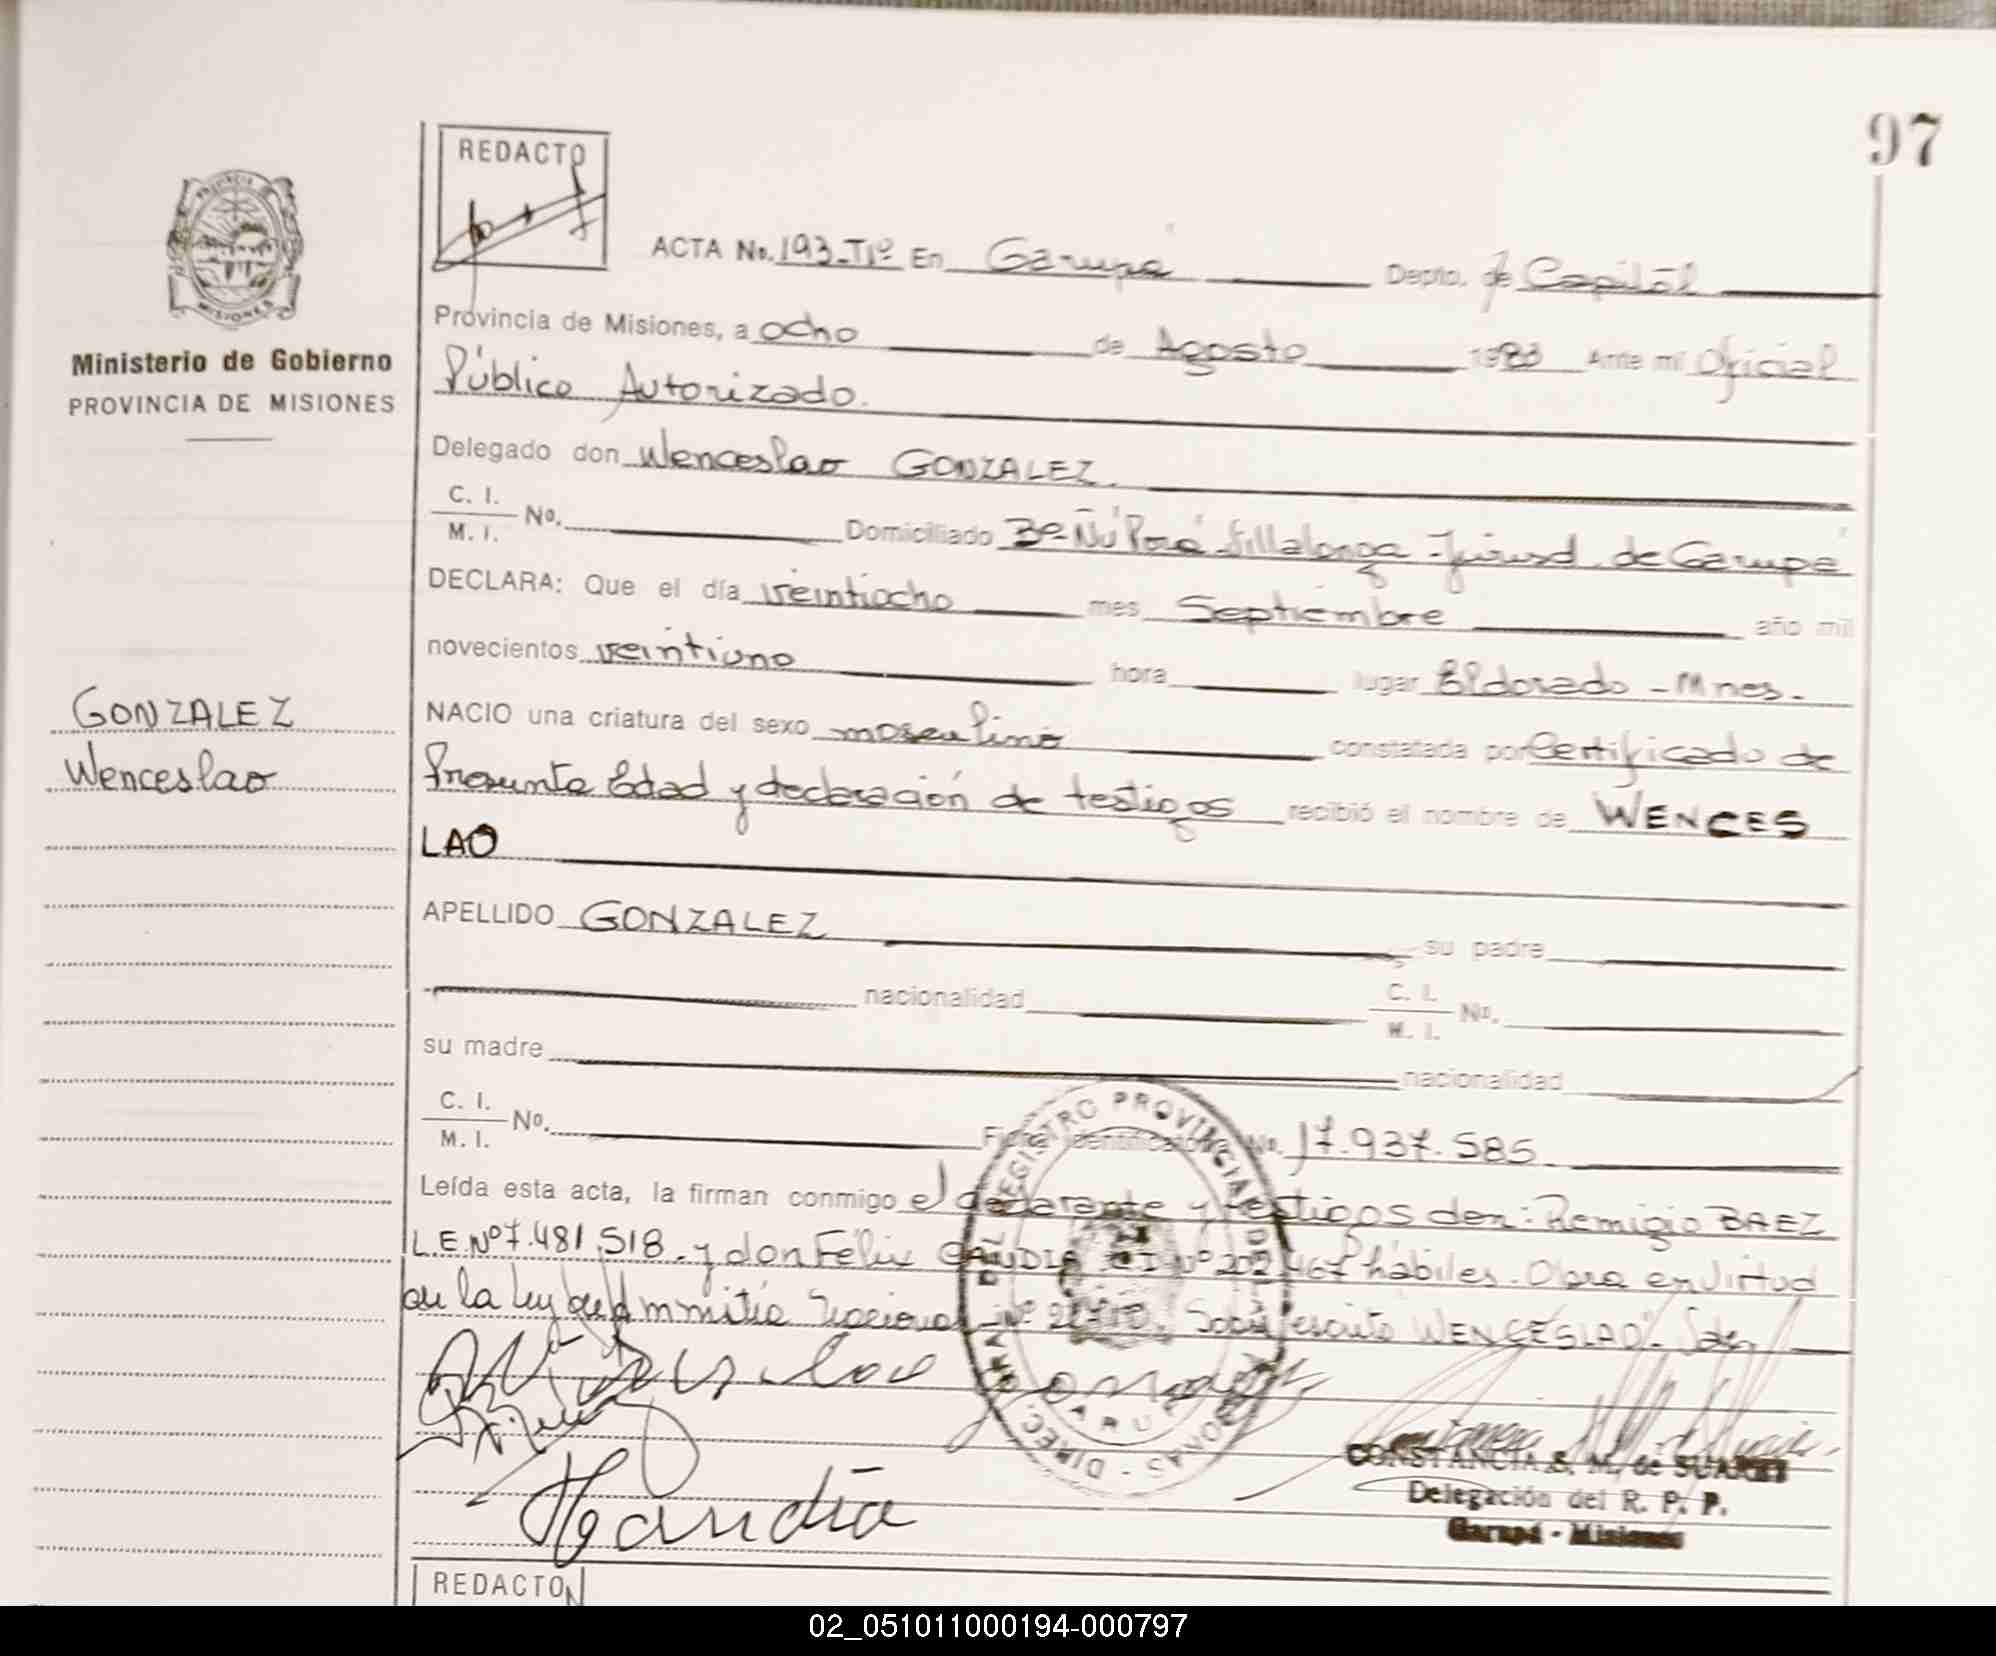 97
REDACTO
PROVINCIA DE
MISIONES
ACTA No. 193-Tº1º En Garupá Depto. de Capital
Provincia de Misiones, a ocho de Agosto 1983 Ante mí Oficial
Ministerio de Gobierno
PROVINCIA DE MISIONES
Público Autorizado.
Delegado don Wenceslao GONZALEZ.
C. I.
M. I. Nº. Domiciliado Bº Ñú Porá Villalonga - Jurisd. de Garupá
DECLARA: Que el día veintiocho mes Septiembre año mil
novecientos veintiuno hora lugar Eldorado - Mnes.
GONZALEZ
Wenceslao
NACIO una criatura del sexo masculino constatada por Certificado de
Presunta Edad y declaración de testigos recibió el nombre de WENCES
LAO
APELLIDO GONZALEZ su padre
nacionalidad C. I.
M. I. No.
su madre nacionalidad
C. I.
M. I. Nº. Ficha Identificatoria No. 17.937.585
Leída esta acta, la firman conmigo el declarante y testigos don: Remigio BAEZ
L.E.Nº 7.481.518. y don Félix GAÑDIA CI Nº 202.467 hábiles. Obra en virtud
de la Ley de Amnistía Nacional Nº Sobre escrito "WENCESLAO".
REGISTRO PROVINCIAL DE
PERSONAS - DIREC
GARUPA
Gandia
CONSTANCIA S. M. de SUAREZ
Delegación del R. P. P.
Garupá - Misiones
REDACTO
02_051011000194-000797